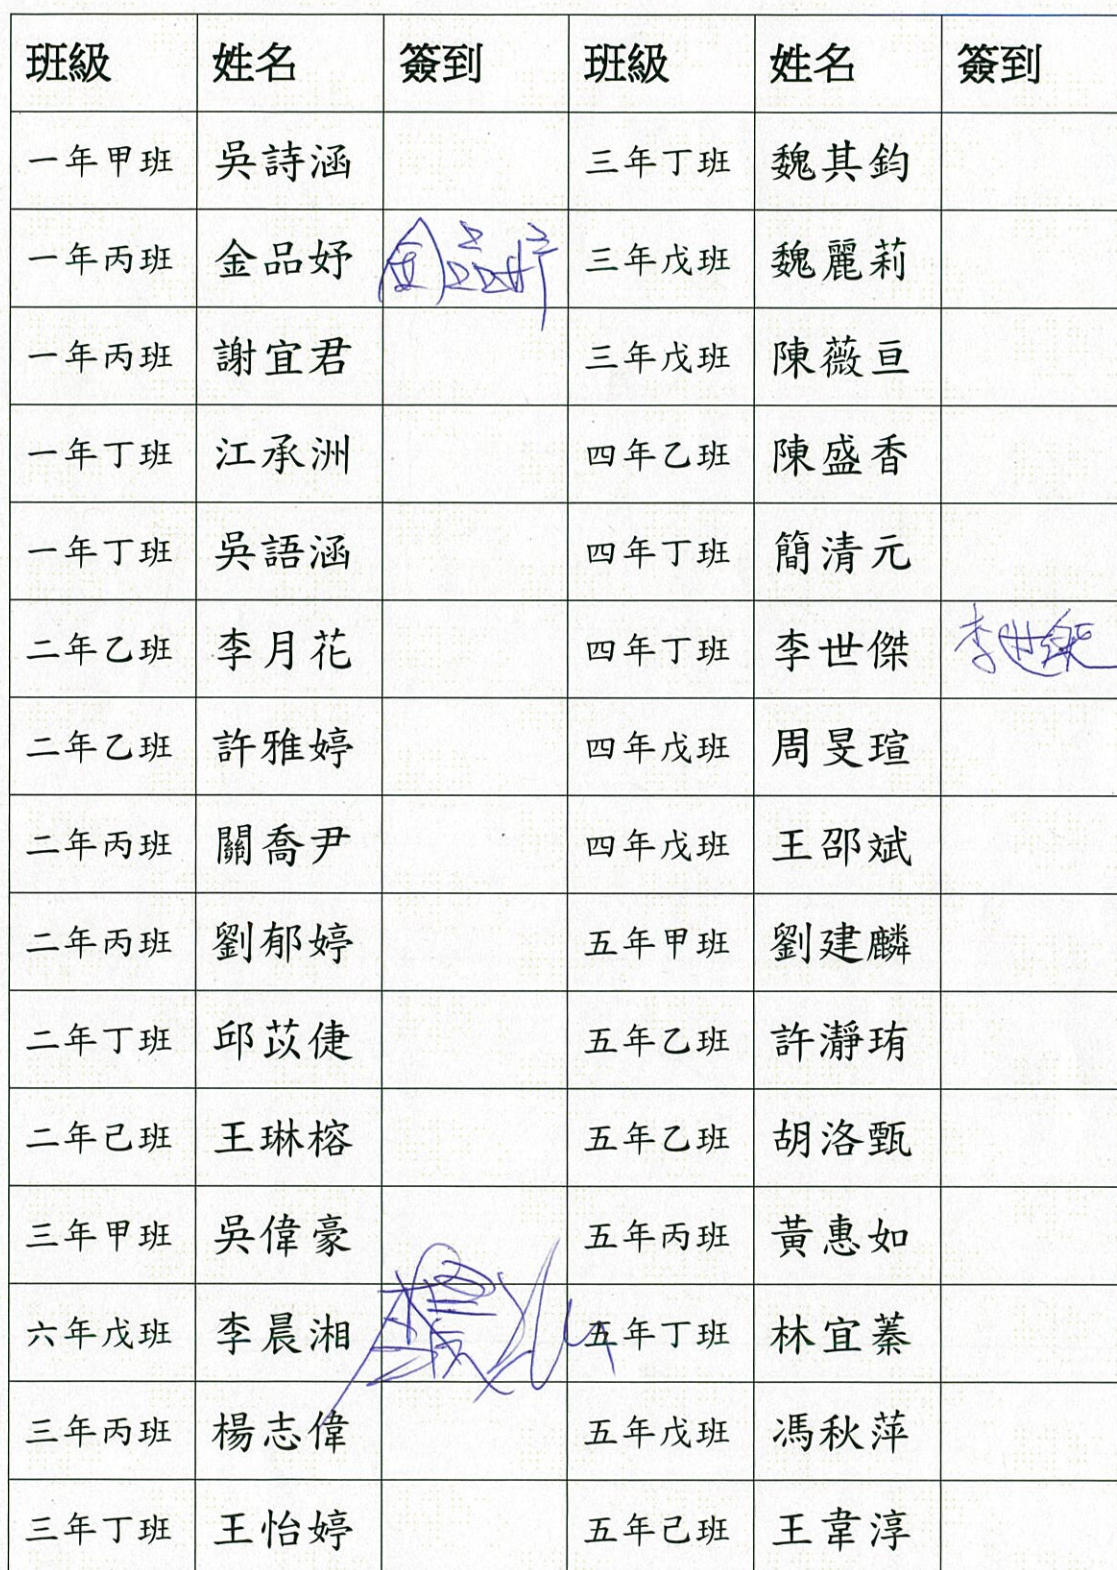 班級 姓名 簽到 班級 姓名 簽到
一年甲班 吳詩涵 三年丁班 魏其鈞
一年丙班 金品妤 金品妤 三年戊班 魏麗莉
一年丙班 謝宜君 三年戊班 陳薇亘
一年丁班 江承洲 四年乙班 陳盛香
一年丁班 吳語涵 四年丁班 簡清元
二年乙班 李月花 四年丁班 李世傑 李世傑
二年乙班 許雅婷 四年戊班 周旻瑄
二年丙班 關喬尹 四年戊班 王邵斌
二年丙班 劉郁婷 五年甲班 劉建麟
二年丁班 邱苡倢 五年乙班 許瀞珛
二年己班 王琳榕 五年乙班 胡洛甄
三年甲班 吳偉豪 五年丙班 黃惠如
六年戊班 李晨湘 五年丁班 林宜蓁
三年丙班 楊志偉 五年戊班 馮秋萍
三年丁班 王怡婷 五年己班 王韋淳